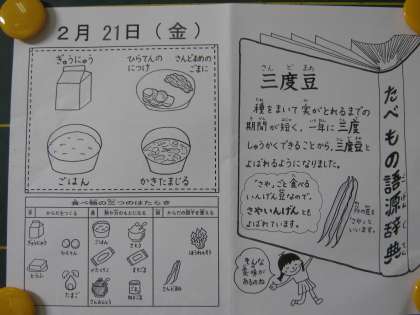 2月 21日（金）
ぎゅうにゅう
ひらてんの
につけ
さんどまめの
ごまに
ごはん
かきたまじる
食べ物の三つのはたらき
赤 からだをつくる
黄 熱や力のもとになる
緑 からだの調子を整える
ぎゅうにゅう
ひらてん
とうふ
たまご
ごはん
さとう
かたくりこ
さといも
ごま
ほうれんそう
さんどまめ
たべもの語源辞典
さんどまめ
三度豆
種をまいて実がとれるまでの
期間が短く、一年に三度
しゅうかくできることから、三度豆と
よばれるようになりました。
"さや"ごと食べる
いんげん豆なので、
さやいんげんとも
よばれています。
"さや"と
いいます。
そんな
意味が
あるのね